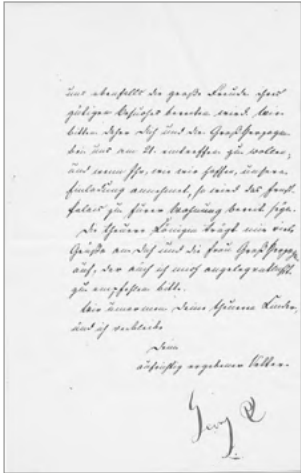 uns ebenfalls die große Freude ihres
gütigen Besuches bereiten wird. Wir
bitten daher Dich und die Großherzogin
bei uns am 21. eintreffen zu wollen,
und wenn Ihr, wie wir hoffen, unsere
Einladung annehmet, so wird das
Palais zu Eurer Wohnung bereit sein.
Die theuere Königin trägt mir viele
Grüße an Dich und die Frau Großherzogin
auf, der auch ich mich angelegentlichst
zu empfehlen bitte.
Wir umarmen Deine theueren Kinder,
und ich verbleibe
Dein
aufrichtig ergebener Vetter
Georg